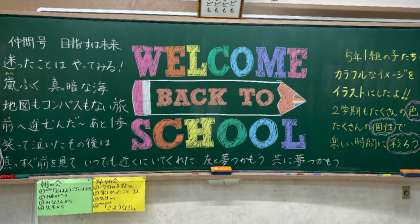 仲間号 目指すは未来
迷ったことは やってみろ!
嵐ふく 真暗な海
地図もコンパスもない旅
前へ進むんだ~ あと1歩
笑って泣いたその後は
まっすぐ前を見て いつでも近くにいてくれた 友と夢つかもう 共に夢つかもう
WELCOME
BACK TO
SCHOOL
5年1組の子たち
カラフルなイメージを
イラストにしたよ!!
2学期もたくさんの色
たくさんの個性で
楽しい時間に彩ろう